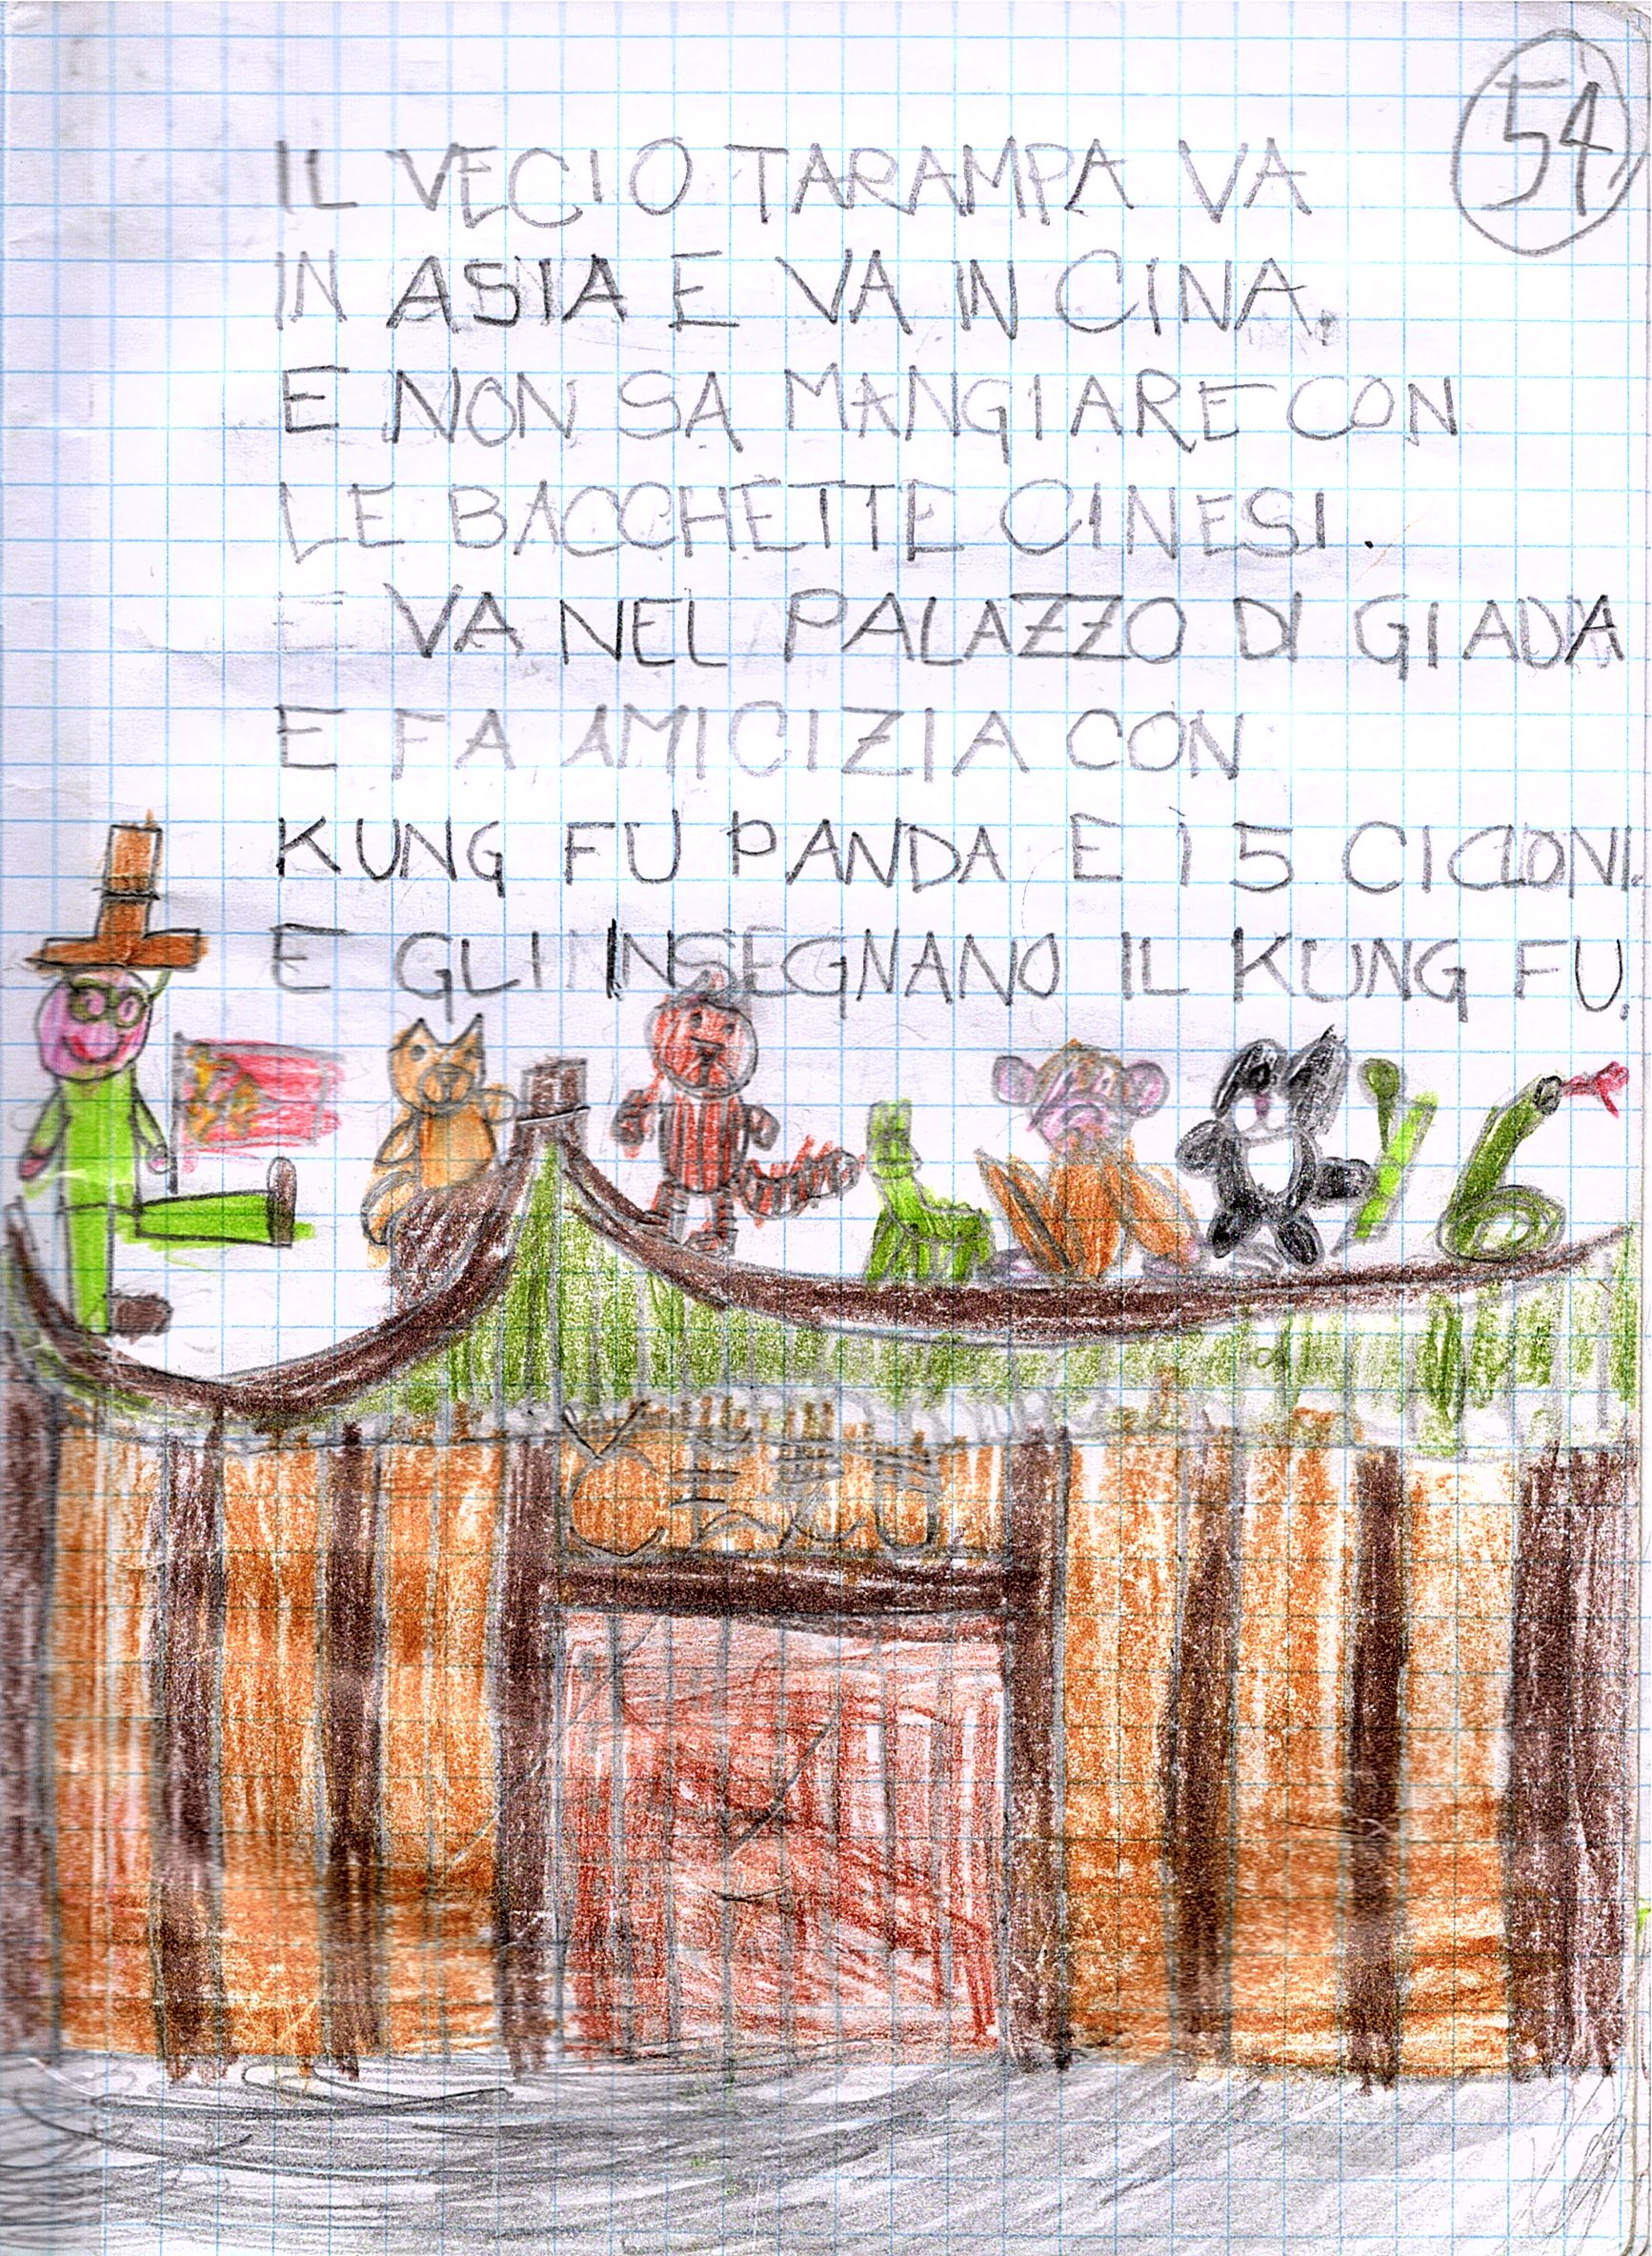 54
IL VECIO TARAMPA VA
IN ASIA E VA IN CINA.
E NON SA MANGIARE CON
LE BACCHETTE CINESI.
E VA NEL PALAZZO DI GIADA
E FA AMICIZIA CON
KUNG FU PANDA E I 5 CICLONI.
E GLI INSEGNANO IL KUNG FU.